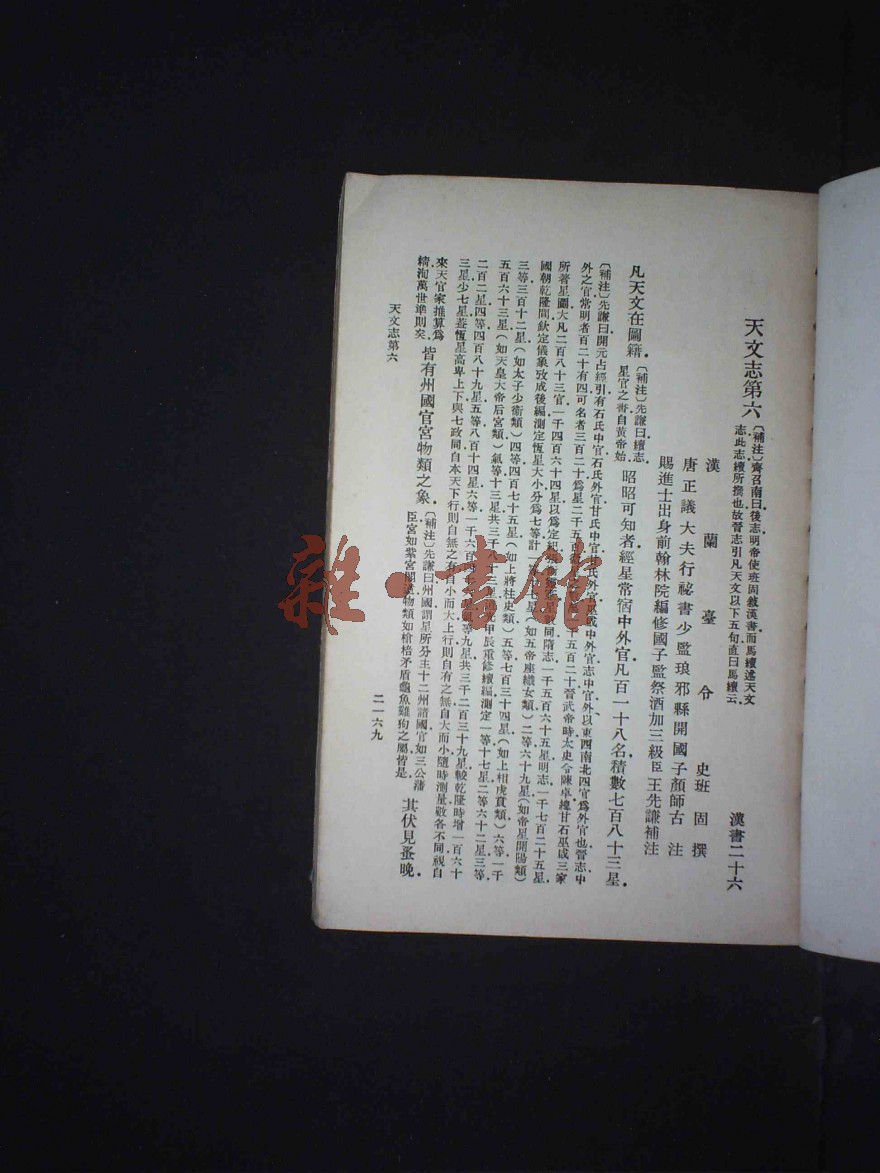 天文志第六
〔補注〕齊召南曰後志明帝使班固敍漢書而馬續述天文
志此志續所撰也故晉志引凡天文以下五句直曰馬續云
漢書二十六
漢蘭臺令史班固撰
唐正議大夫行祕書少監琅邪縣開國子顏師古注
賜進士出身前翰林院編修國子監祭酒加三級臣王先謙補注
凡天文在圖籍
〔補注〕先謙曰續志
星官之書自黃帝始
昭昭可知者經星常宿中外官凡百一十八名積數七百八十三星
〔補注〕先謙曰開元占經引有石氏中官石氏外官甘氏中官氏外官巫咸中外官志中官外以東西南北四官爲外官也晉志中
外之官常明者百二十有四可名者三百二十爲星二千五百五百二十晉武帝時太史令陳卓總甘石巫咸三家
所著星圖大凡二百八十三官一千四百六十四星以爲定紀同隋志一千五百六十五星明志一千七百二十五星
國朝乾隆間欽定儀象攷成後編測定恆星大小分爲七等計一星(如五帝座織女類)二等六十九星(如帝星開陽類)
三等三百十二星(如太子少衛類)四等四百七十五星(如上將柱史類)五等七百三十四星(如上相虎賁類)六等一千
五百六十三星(如天皇大帝后宮類)氣等十三星共三千八十三星甲辰重修續編測定一等十七星二等六十二星三等
二百二星四等四百八十九星五等八百十四星六等一千六百等九星共三千二百三十九星較乾隆時增一百六十
三星少七星蓋恆星高卑上下與七政同自本天下行則自無之有自小而大上行則自有之無自大而小隨時測量數各不同視自
來天官家推算爲
精洵萬世準則矣
皆有州國官宮物類之象
〔補注〕先謙曰州國謂星所分主十二州諸國官如三公藩
臣宮如紫宮閣道物類如槍棓矛盾龜魚雞狗之屬皆是
其伏見蚤晚
天文志第六
二一六九
雜·書館